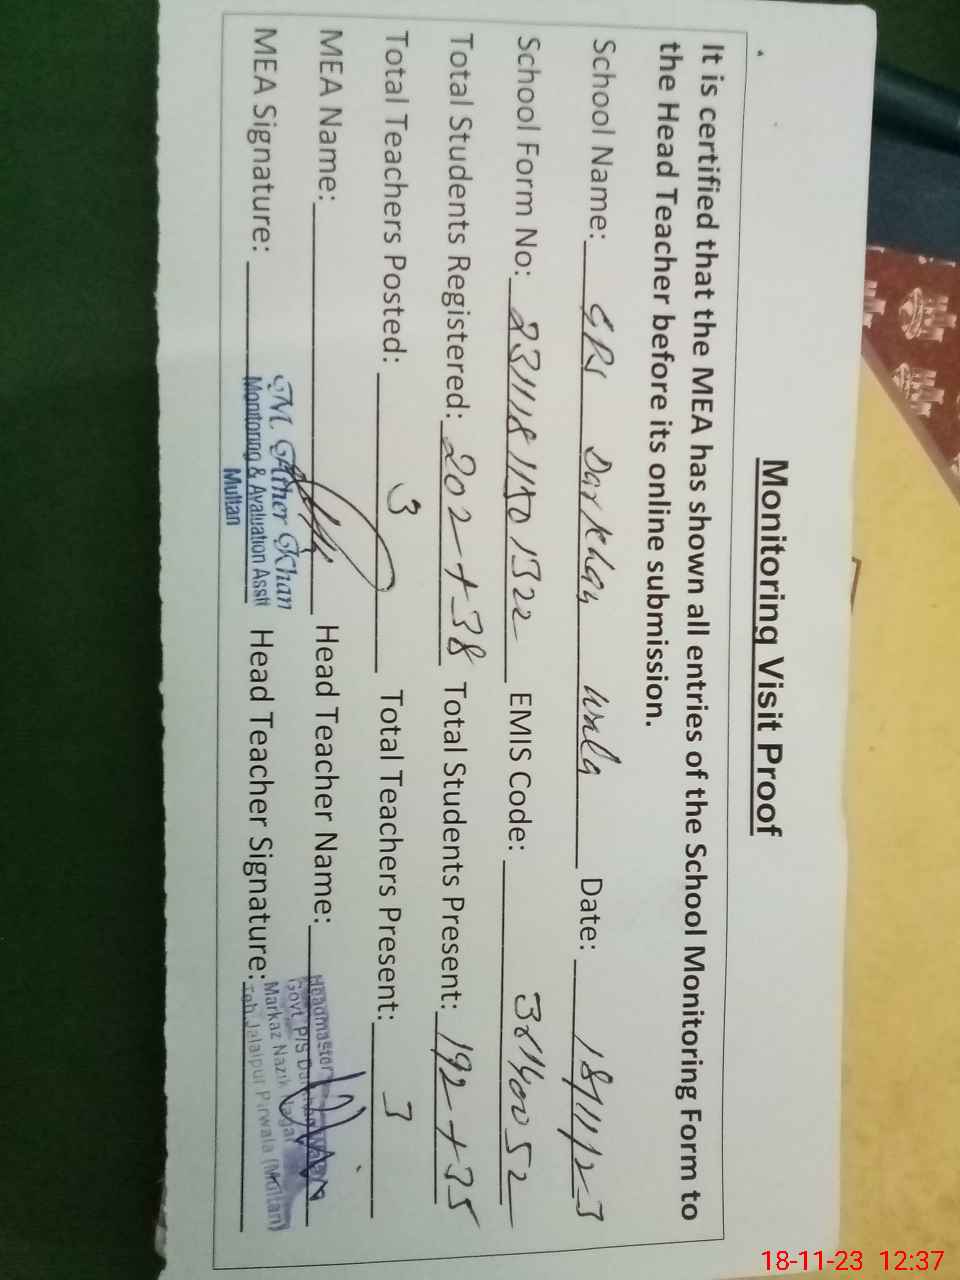 Monitoring Visit Proof
It is certified that the MEA has shown all entries of the School Monitoring Form to
the Head Teacher before its online submission.
School Name: GPS Darkhan wala Date: 18/11/23
School Form No: Total Students Registered: 202+38 Total Students Present: 192+35
EMIS Code:
Total Teachers Posted: 3 Total Teachers Present: 3
MEA Name: Head Teacher Name:
MEA Signature: Head Teacher Signature:
M. Ather Khan
Monitoring & Avaluation Asstt
Multan
Headmaster
Govt. P/S
Markaz Nazik
Jalalpur Pirwala (Multan)
18-11-23 12:37